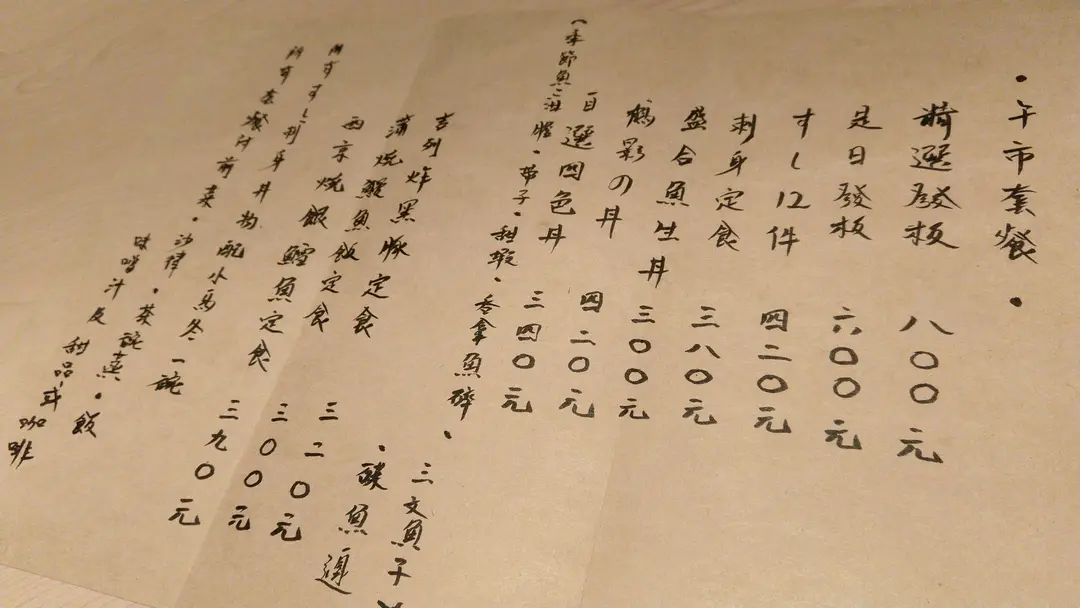 ・午市套餐・
精選發板 八〇〇元
是日發板 六〇〇元
すし12件 四二〇元
刺身定食 三八〇元
盛合魚生丼 三〇〇元
鶴影の丼 四二〇元
自選四色丼 三四〇元
(季節魚、油甘、帶子、甜蝦、吞拿魚碎、
三文魚子
、魷魚
吉列炸黑豚定食 三二〇元
蒲燒鰻魚飯定食 三〇〇元
西京燒銀鱈魚定食 三九〇元
所有すし刺身丼均配小烏冬一碗
所有套餐付前菜・沙律・茶碗蒸・飯
味噌汁及甜品或咖啡